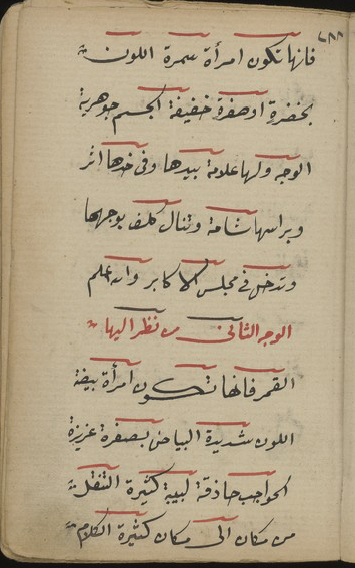 ٢٨٨
فانها تكون امرأة سمرة اللون
بخضرة او صفرة خفيفة الجسم جوهرية
الوجه ولها علامة بيدها وفى خدها اثر
وبراسها شامة وتنال كلف بوجهها
وتدخل فى مجلس الاكابر والله اعلم
الوجه الثانى من نظر اليها
القمر فانها تكون امرأة بيضة
اللون شديدة البياض بصفرة عزيزة
الحواجب حاذقة لبيبة كثيرة التنقل
من مكان الى مكان كثيرة الكلام